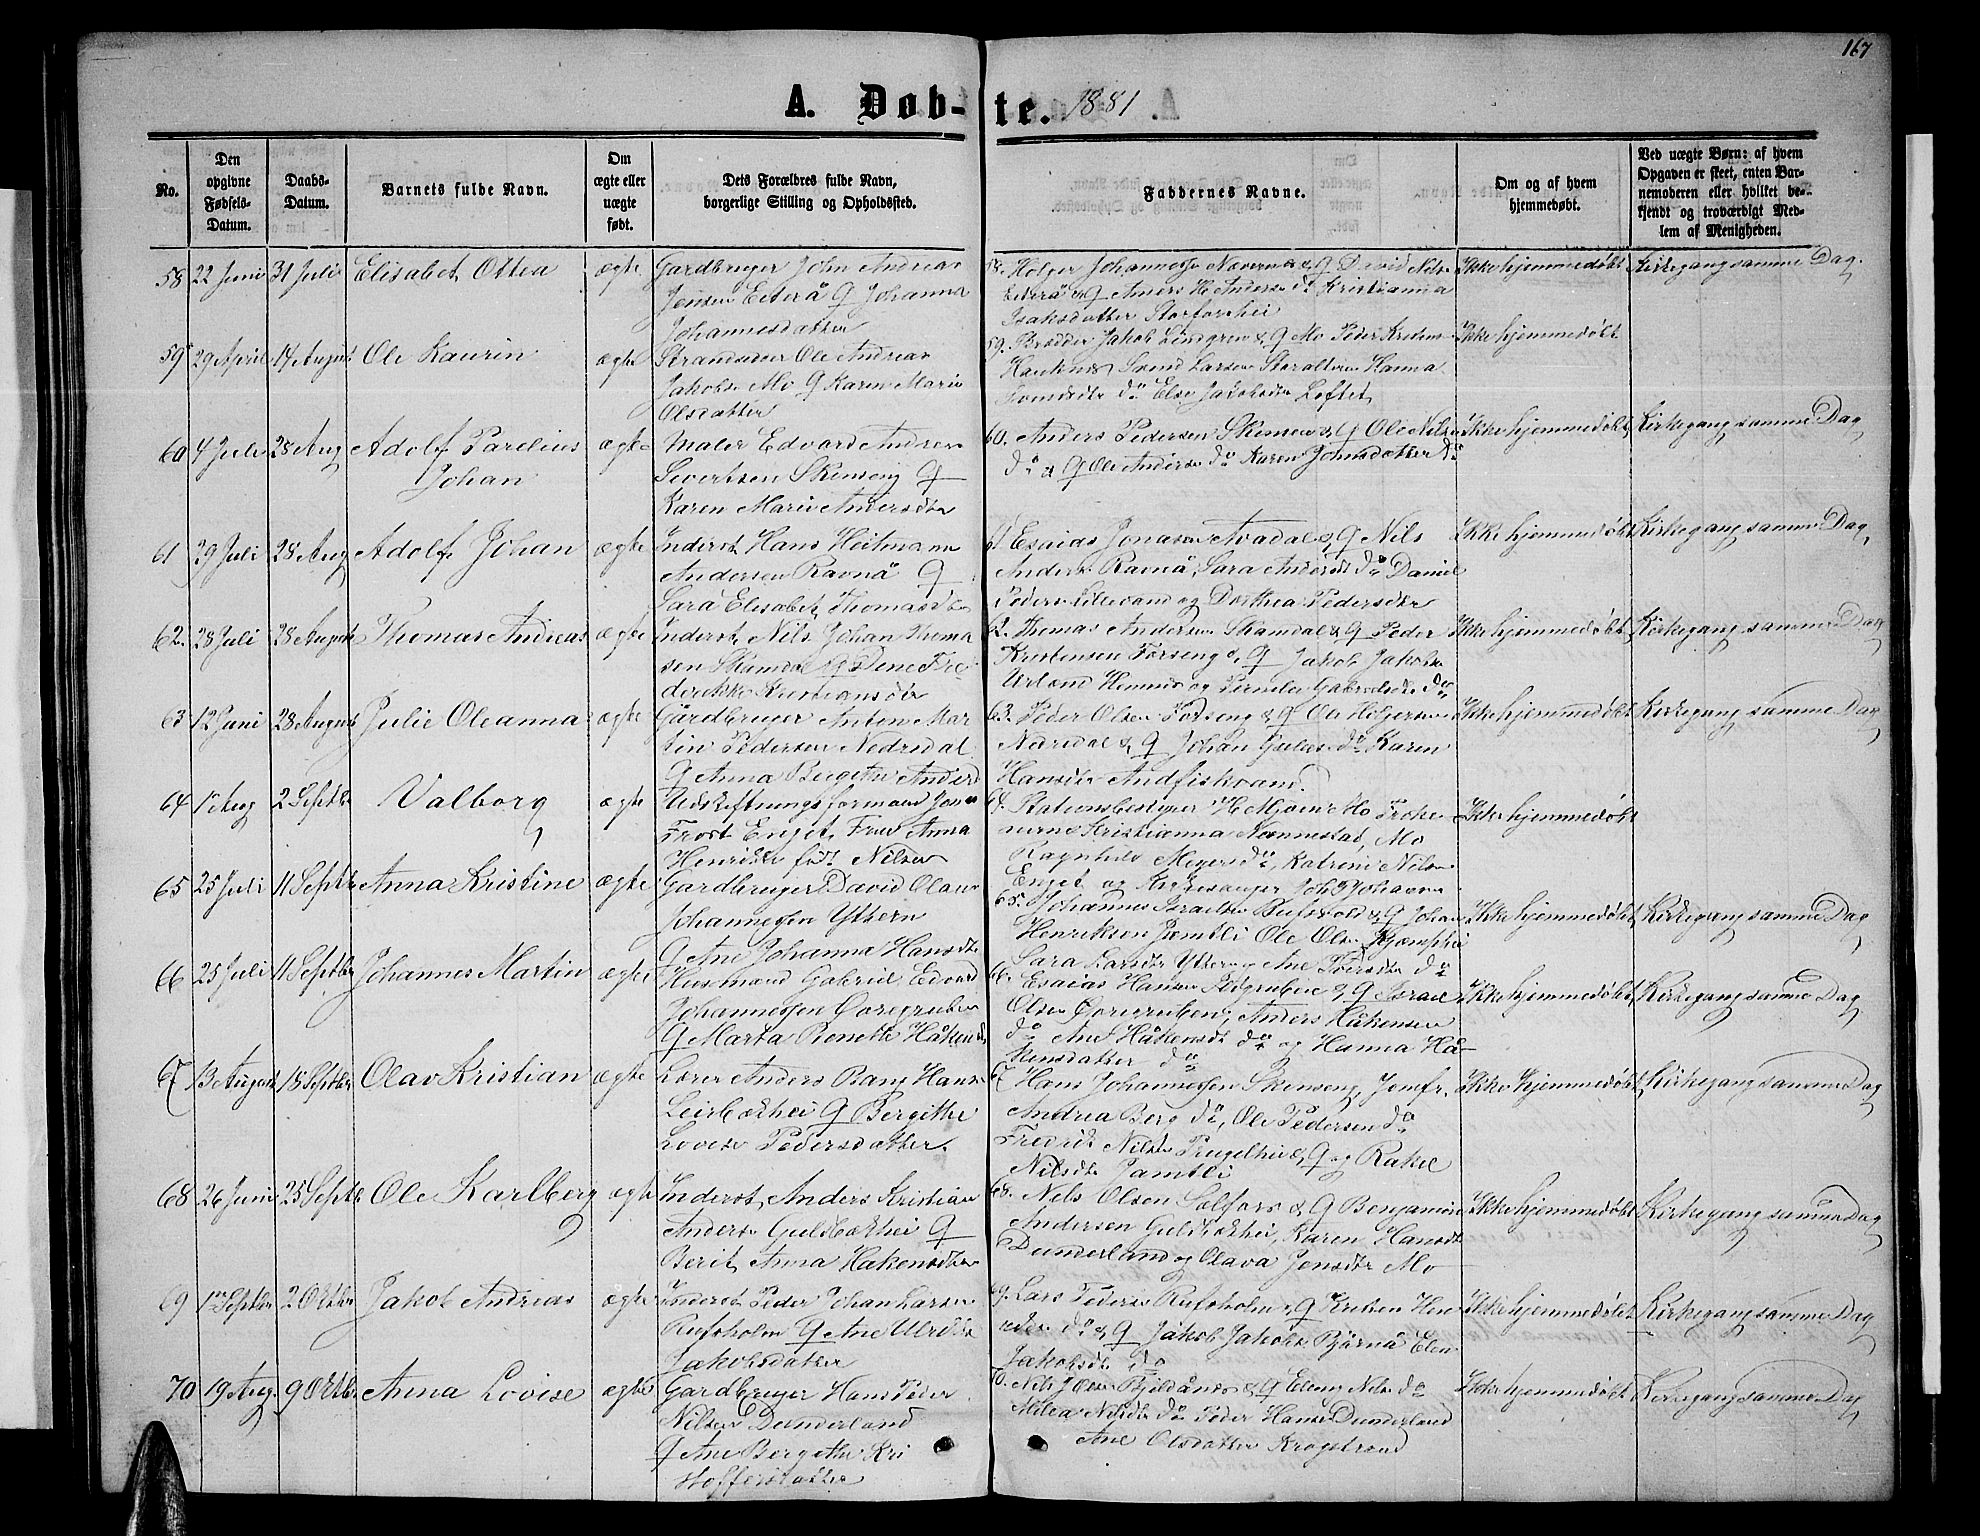 167
A. Døb-te. 1881
No.
Den opgivne Fødsels-Datum.
Daabs-Datum.
Barnets fulde Navn.
Om ægte eller uægte født.
Dets Forældres fulde Navn, borgerlige Stilling og Opholdssted.
Faddernes Navne.
Om og af hvem hjemmedøbt.
Ved uægte Børn: af hvem Opgaven er skeet, enten Barnemoderen eller hvilket bekjendt og troværdigt Medlem af Menigheden.
58 22 Juni 31 Juli Elisabet Ottea ægte Gardbruger John Andreas
Jensen Eiterå G Johanna
Johannesdatter
58. Holger Johannesse Næverna & G David Nils
Eiterå & G Anders H Anders do Kristianna
Isaksdatter Storforshei
Ikke hjemmedøbt Kirkegang samme Dag.
59 29 April 14 August Ole Kaurin ægte Strandsidder Ole Andreas
Jakobs Mo G Karen Marie
Olsdatter
59. Brødder Jakob Lindgren & G Mo Peder Kristens
Hauknes Svend Larsen Storalteren Hanna
do Else Jakobsdtr Loftet
Ikke hjemmedøbt
60 4 Juli 28 Aug Adolf Parelius
Johan
ægte Maler Edvard Andreas
Sivertsen Skonseng G
Karen Marie Andersdtr
60. Anders Pedersen Skonseng & G Ole Nilsen
do & G Ole Anders do Karen Johnsdatter do
Ikke hjemmedøbt Kirkegang samme Dag
61 29 Juli 28 Aug Adolf Johan ægte Inderst Hans Heitmann
Andersen Ravnå G
Sara Elisabet Thomasdtr
61 Esaias Jonasen Avadal & G Nils
Anders Ravnå, Sara Andersdt do Daniel
Peders Lillestrand og Dorthea Pedersdtr
Ikke hjemmedøbt Kirkegang samme Dag
62. 28 Juli 28 August Thomas Andreas ægte Inderst Nils Johan Thoma
sen Skamdal G Dene Fre
derikke Kristiansdtr
62. Thomas Andersen Skamdal & G Peder
Kristensen Forseng & G Jakob Jakobs
Urland Hemnes og Pernille Gabrielsdtr do
Ikke hjemmedøbt Kirkegang samme Dag
63 12 Juni 28 August Julie Oleanna ægte Gårdbruger Anton Mar
tin Pedersen Nedredal
G Anna Bergitte Andersd
63. Peder Olsen Forseng & G Ole Holgersen
Nedredal & G Johan Julius do Karen
Hansdtr Andfiskvand.
Ikke hjemmedøbt Kirkegang samme Dag
64 1 Aug 2 Septbr Valborg ægte Udskiftningsformand Jens
Frost Enget, Frue Anna
Henriette født Nilsen
64. Stationsbestyrer H. Mjøen Mo Frøke
nerne Kristianna Nannestad, Mo
Ragnhild Meyer do, Katrine Nilsen
Enget og Kirkesanger Joh Johansen
Ikke hjemmedøbt
65 25 Juli 11 Septbr Anna Kristine ægte Gardbruger David Olaus
Johannessen Yttern
G Ane Johanna Hansdtr
65. Johannes Israelsen Bufsvold & G Johan
Henriksen Jamtli Ole Olsen Kjempehei
Sara Larsdtr Yttern og Ane Iversdtr do
Ikke hjemmedøbt Kirkegang samme Dag
66 25 Juli 11 Septbr Johannes Martin ægte Husmand Gabriel Edvard
Johannessen Goregruben
G Marta Benette Håkensdtr
66. Esaias Hansen Isgruben & G Israel
Olsen Goregruben, Anders Håkensen
do Ane Håkensdt do og Hanna Hå-
kensdatter do
Ikke hjemmedøbt Kirkegang samme Dag
67 13 August 18 Septbr Olav Kristian ægte Lærer Anders Bang Hansen
Leirbakhei G Bergitte
Lovise Pedersdatter
67 Hans Johannessen Skonseng, Jomfr.
Andrea Berg do, Ole Pedersen do
Fredrik Nilsen Prugelhei & G og Rakel
Nilsdtr Jamtli
Ikke hjemmedøbt Kirkegang samme Dag
68 26 Juni 25 Septb Ole Karlberg ægte Inderst Anders Kristian
Anders Guldbakhei G
Berit Anna Hakensdtr
68. Nils Olsen Solfors & G Benjamin
Andersen Guldbakhei, Karen Hansdt
Dunderland og Olava Jensdtr Mo
Ikke hjemmedøbt Kirkegang samme Dag
69 1 Septbr 2 Oktbr Jakob Andreas ægte Inderst Peder Johan Larsen
Rufsholm G Ane Ulrikke
Jakobsdatter
69. Lars Peders Rufsholm & G Kristen Hen
riksen do & G Jakob Jakobs Bjørnå Elen
Jakobsdt do
Ikke hjemmedøbt Kirkegang samme Dag
70 19 Aug. 9 Oktbr Anna Lovise ægte Gardbruger Hans Peder
Nilsen Dunderland
G Ane Bergithe Kri
stoffersdatter
70. Nils Olsen Bjeldånes & G Elling Nils do
Milea Nilsdtr do Peder Hans Dunderland
Ane Olsdatter Krogstrand
Ikke hjemmedøbt Kirkegang samme Dag